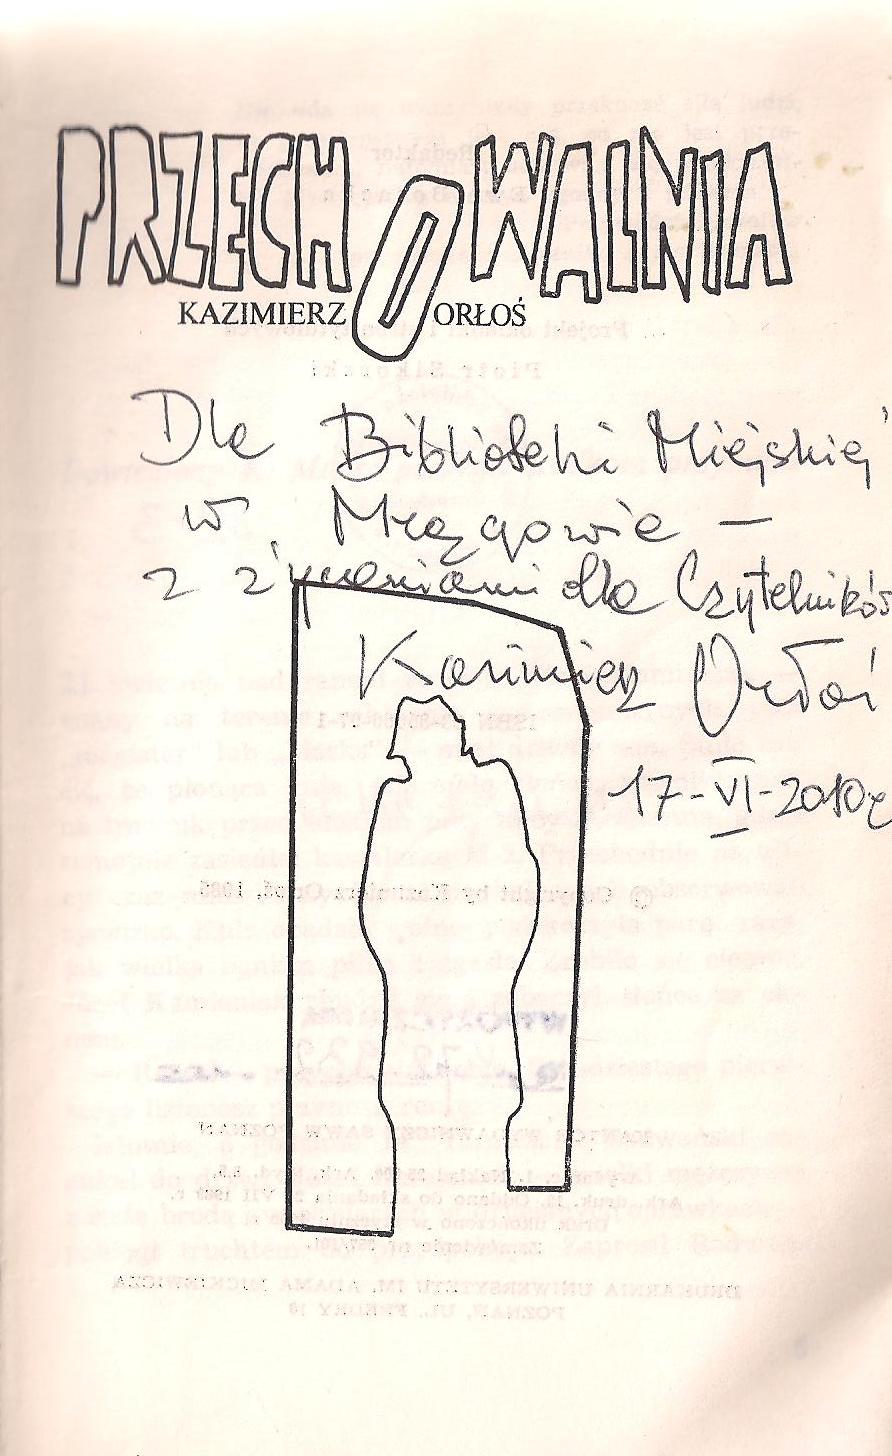 PRZECHOWALNIA
KAZIMIERZ ORŁOŚ
Dla Biblioteki Miejskiej
w Mrągowie —
z życzeniami dla Czytelników
Kazimierz Orłoś
17-VI-2010r